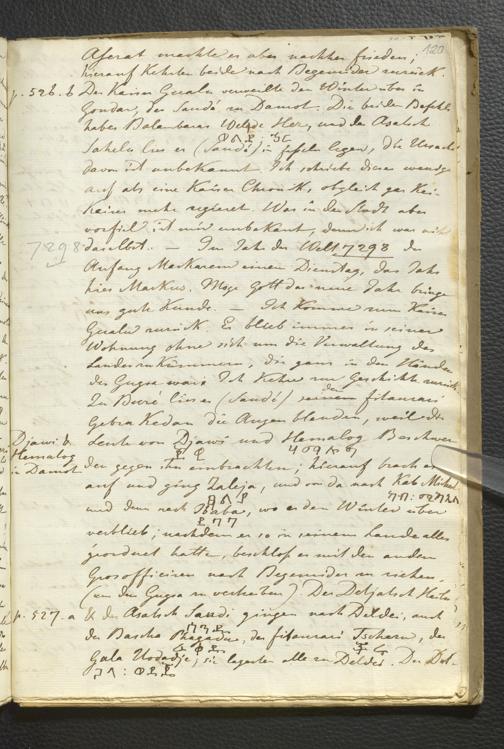 120
Aferat machte er aber nachher frieden;
hierauf kehrten beide nach Begemeder zurück.
p. 526. b Der Kaiser Gualu verweilte den Winter über in
Gondar, der Saudé zu Damot. Die beiden Befehls
haber Balambaras Welde Her, und den Asalech
Sahelu lies er (Saudé) in fesseln legen, die Ursache
davon ist unbekannt. Ich schriebe dieses wenige
auf als eine Kaiser Chronik, obgleich gar kein
Kaiser mehr regieret. Was in der Stadt aber
vorfiel ist mir unbekant, denn ich war nicht
7298 daselbst. — Im Jahr der Welt 7298 der
Anfang Maskarem einen Dienstag, das Jahr
hies Markus. Möge Gott das neue Jahr bringe
uns gute Kunde. — Ich komme zum Kaiser
Gualu zurück. Er blieb immer in seiner
Wohnung ohne sich um die Verwaltung des
Landes zu kümmern, die ganz in den Händen
des Gugsa war. Ich kehre zur Geschichte zurück.
Zu Buré lies er (Saudé) den fitaurari
Gebra Kedan die Augen blenden, weil die
Djawi &. Leute von Djawi und Hemalog Beschwer
Hemalog
in Damot den gegen ihn einbrachten; hierauf brach er
auf und ging Zaleja, und von da nach
und dann nach Baba, wo er den Winter über
verblieb; nachdem er so in seinem Lande alles
geordnet hatte, beschlos er mit den andern
Grosofficiren nach Begemeder zu ziehen,
(um den Gugsa zu vertreiben) Der Dedjatsch
p. 527. a & der Asalech Saudi gingen nach Deldei, auch
der Bascha der fitaurari der
Gala sie lagerten alle zu Deldei. Der Det-